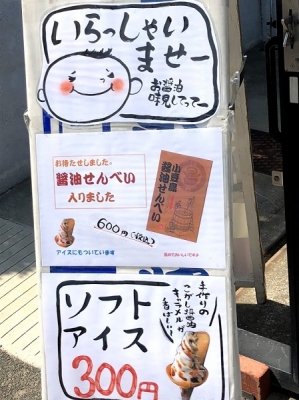 いらっしゃい
ませー
お醤油
味見してってー
お待たせしました。
醤油せんべい
入りました
小豆島
醤油せんべい
600円(税込)
アイスにもついています
ソフト
アイス
300円
手作りの
こがし醤油
キャラメルが
香ばしい!